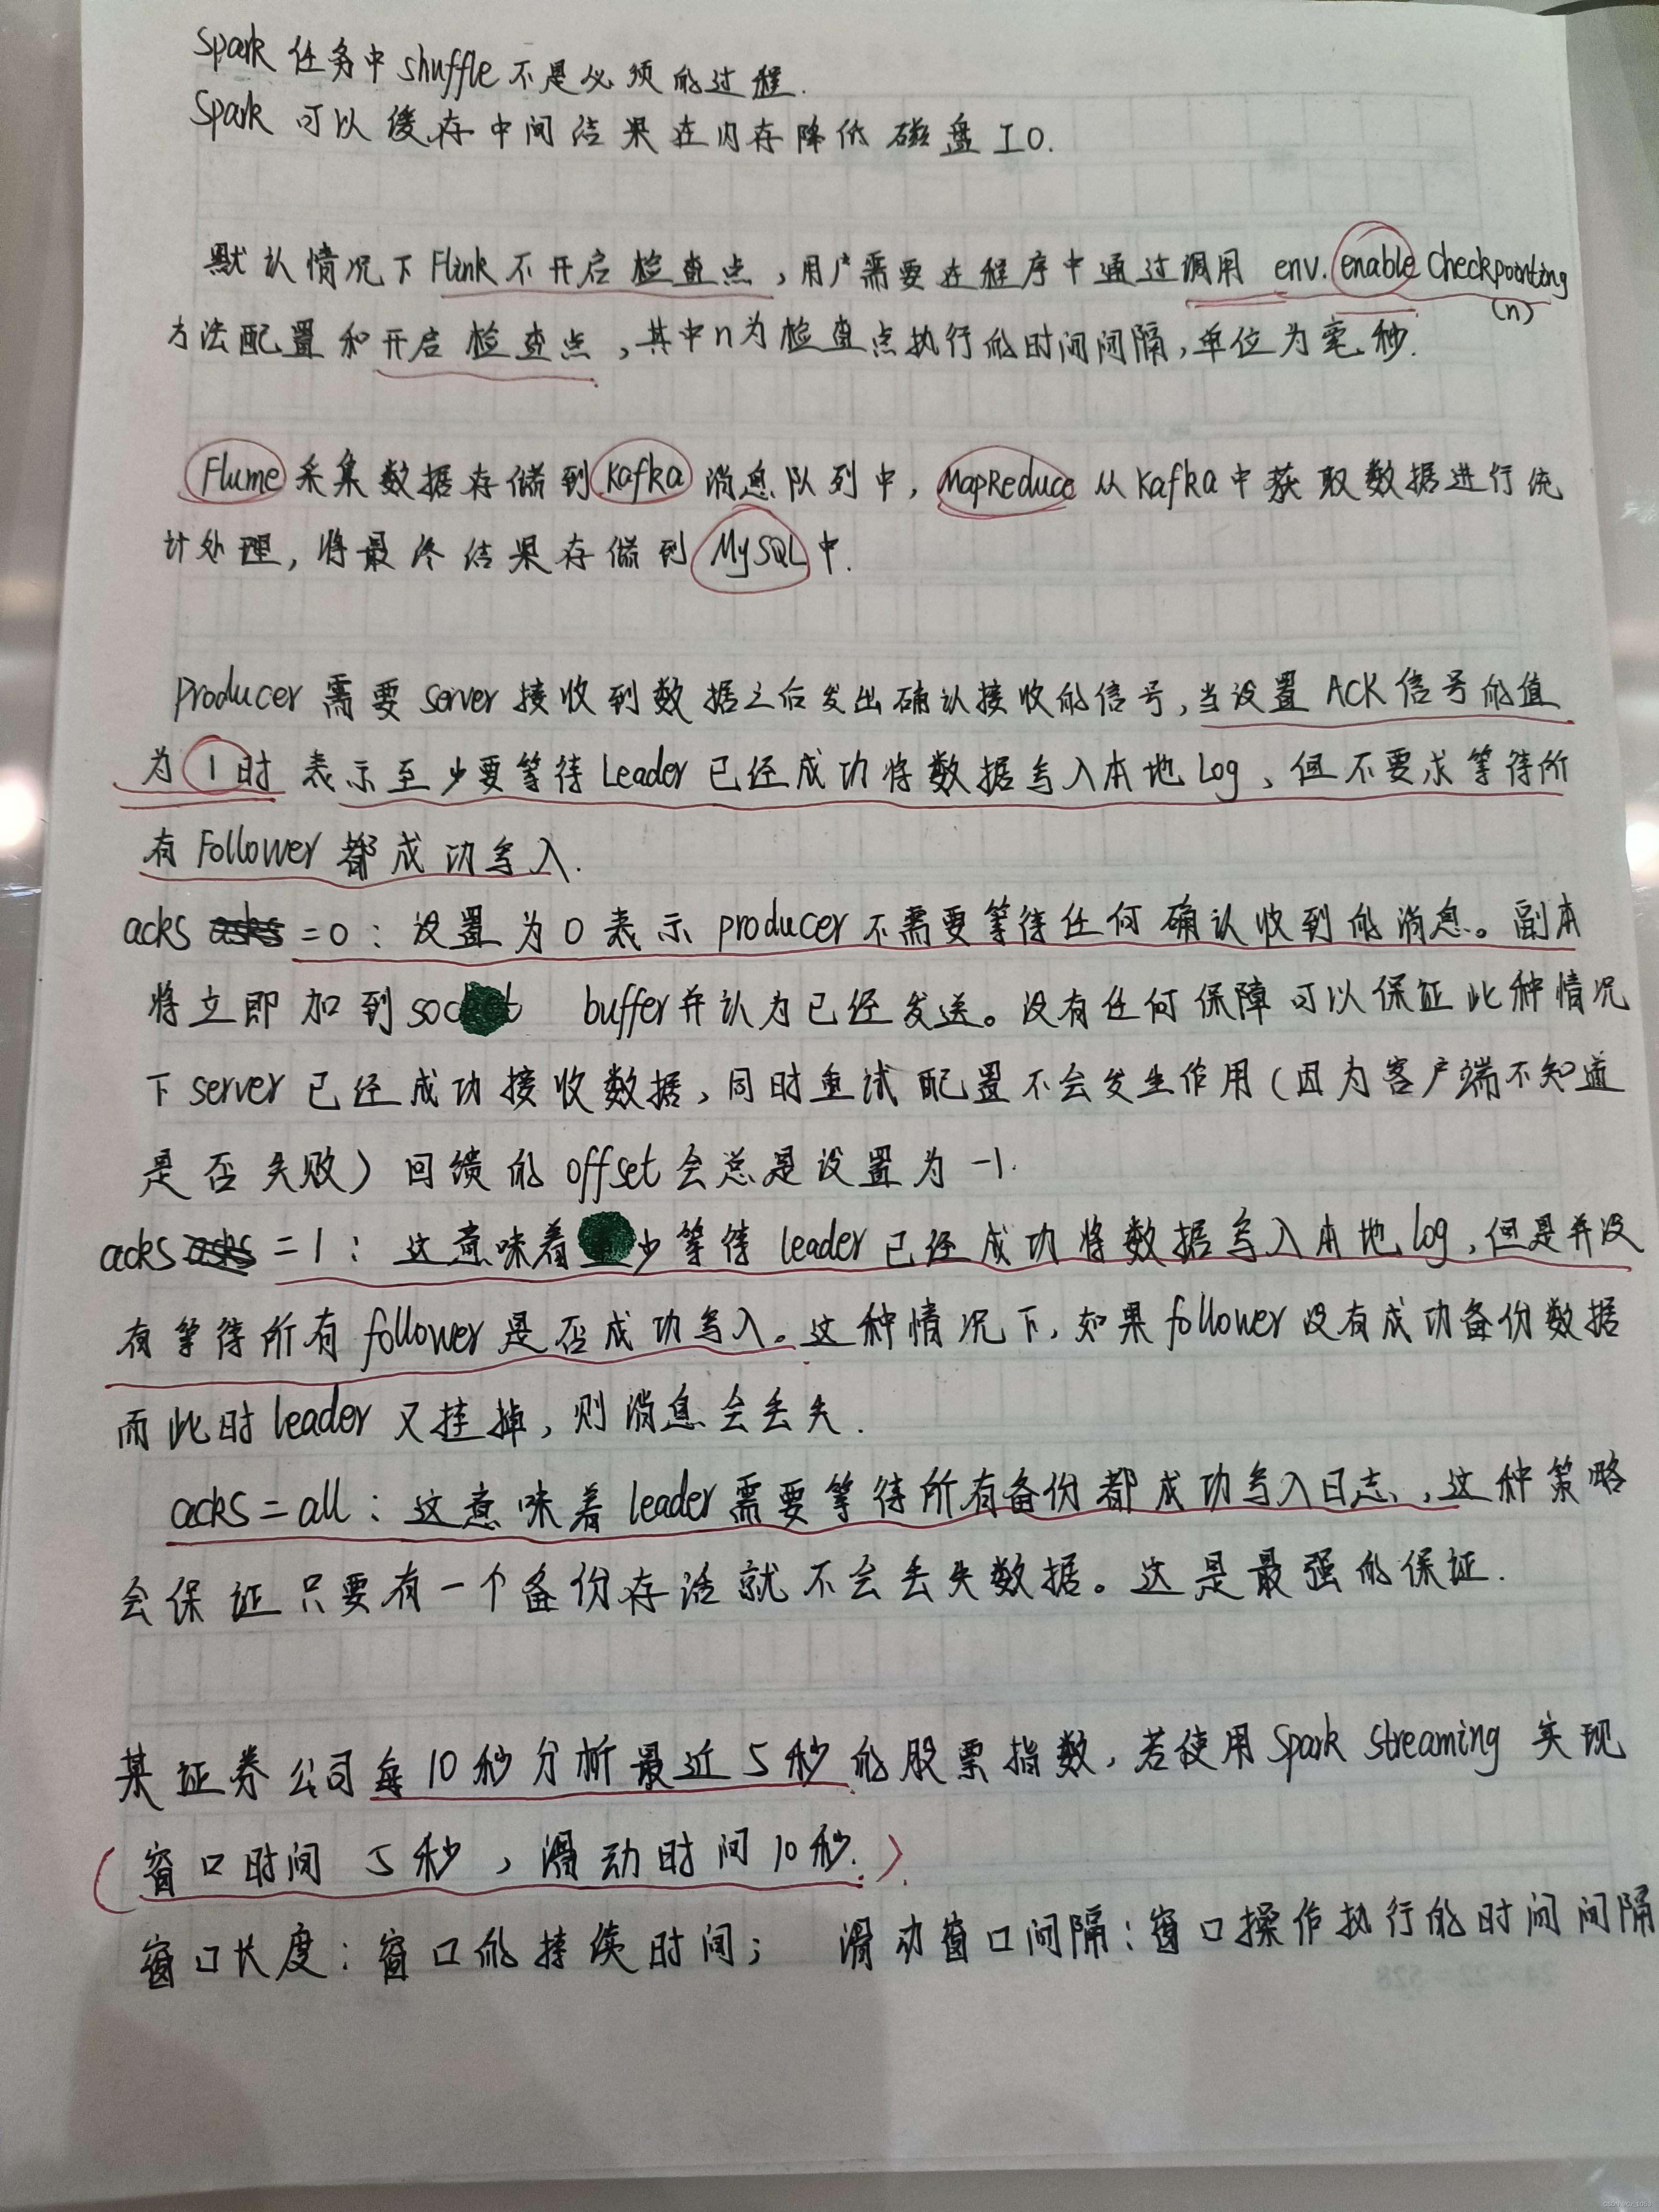 Spark 任务中 shuffle 不是必须的过程.
Spark 可以缓存中间结果在内存降低磁盘IO.
默认情况下 Flink 不开启检查点，用户需要在程序中通过调用 env.enable Checkpointing
(n)
方法配置和开启检查点，其中n为检查点执行的时间间隔，单位为毫秒.
Flume 采集数据存储到 Kafka 消息队列中，MapReduce 从 Kafka 中获取数据进行统
计处理，将最终结果存储到 MySQL 中.
Producer 需要 server 接收到数据之后发出确认接收的信号，当设置 ACK 信号的值
为 1 时 表示至少要等待 Leader 已经成功将数据写入本地 Log，但不要求等待所
有 Follower 都成功写入.
acks =0：设置为 0 表示 producer 不需要等待任何确认收到的消息。副本
将立即加到 buffer 并认为已经发送。没有任何保障可以保证此种情况
下 server 已经成功接收数据，同时重试配置不会发生作用（因为客户端不知道
是否失败）回馈的 offset 会总是设置为 -1.
acks =1：这意味着少等待 leader 已经成功将数据写入本地 log，但是并没
有等待所有 follower 是否成功写入。这种情况下，如果 follower 没有成功备份数据
而此时 leader 又挂掉，则消息会丢失.
acks = all：这意味着 leader 需要等待所有备份都成功写入日志，这种策略
会保证只要有一个备份存活就不会丢失数据。这是最强的保证.
某证券公司每 10 秒分析最近 5 秒的股票指数，若使用 Spark Streaming 实现
（窗口时间 5 秒，滑动时间 10 秒.）.
窗口长度：窗口的持续时间； 滑动窗口间隔：窗口操作执行的时间间隔